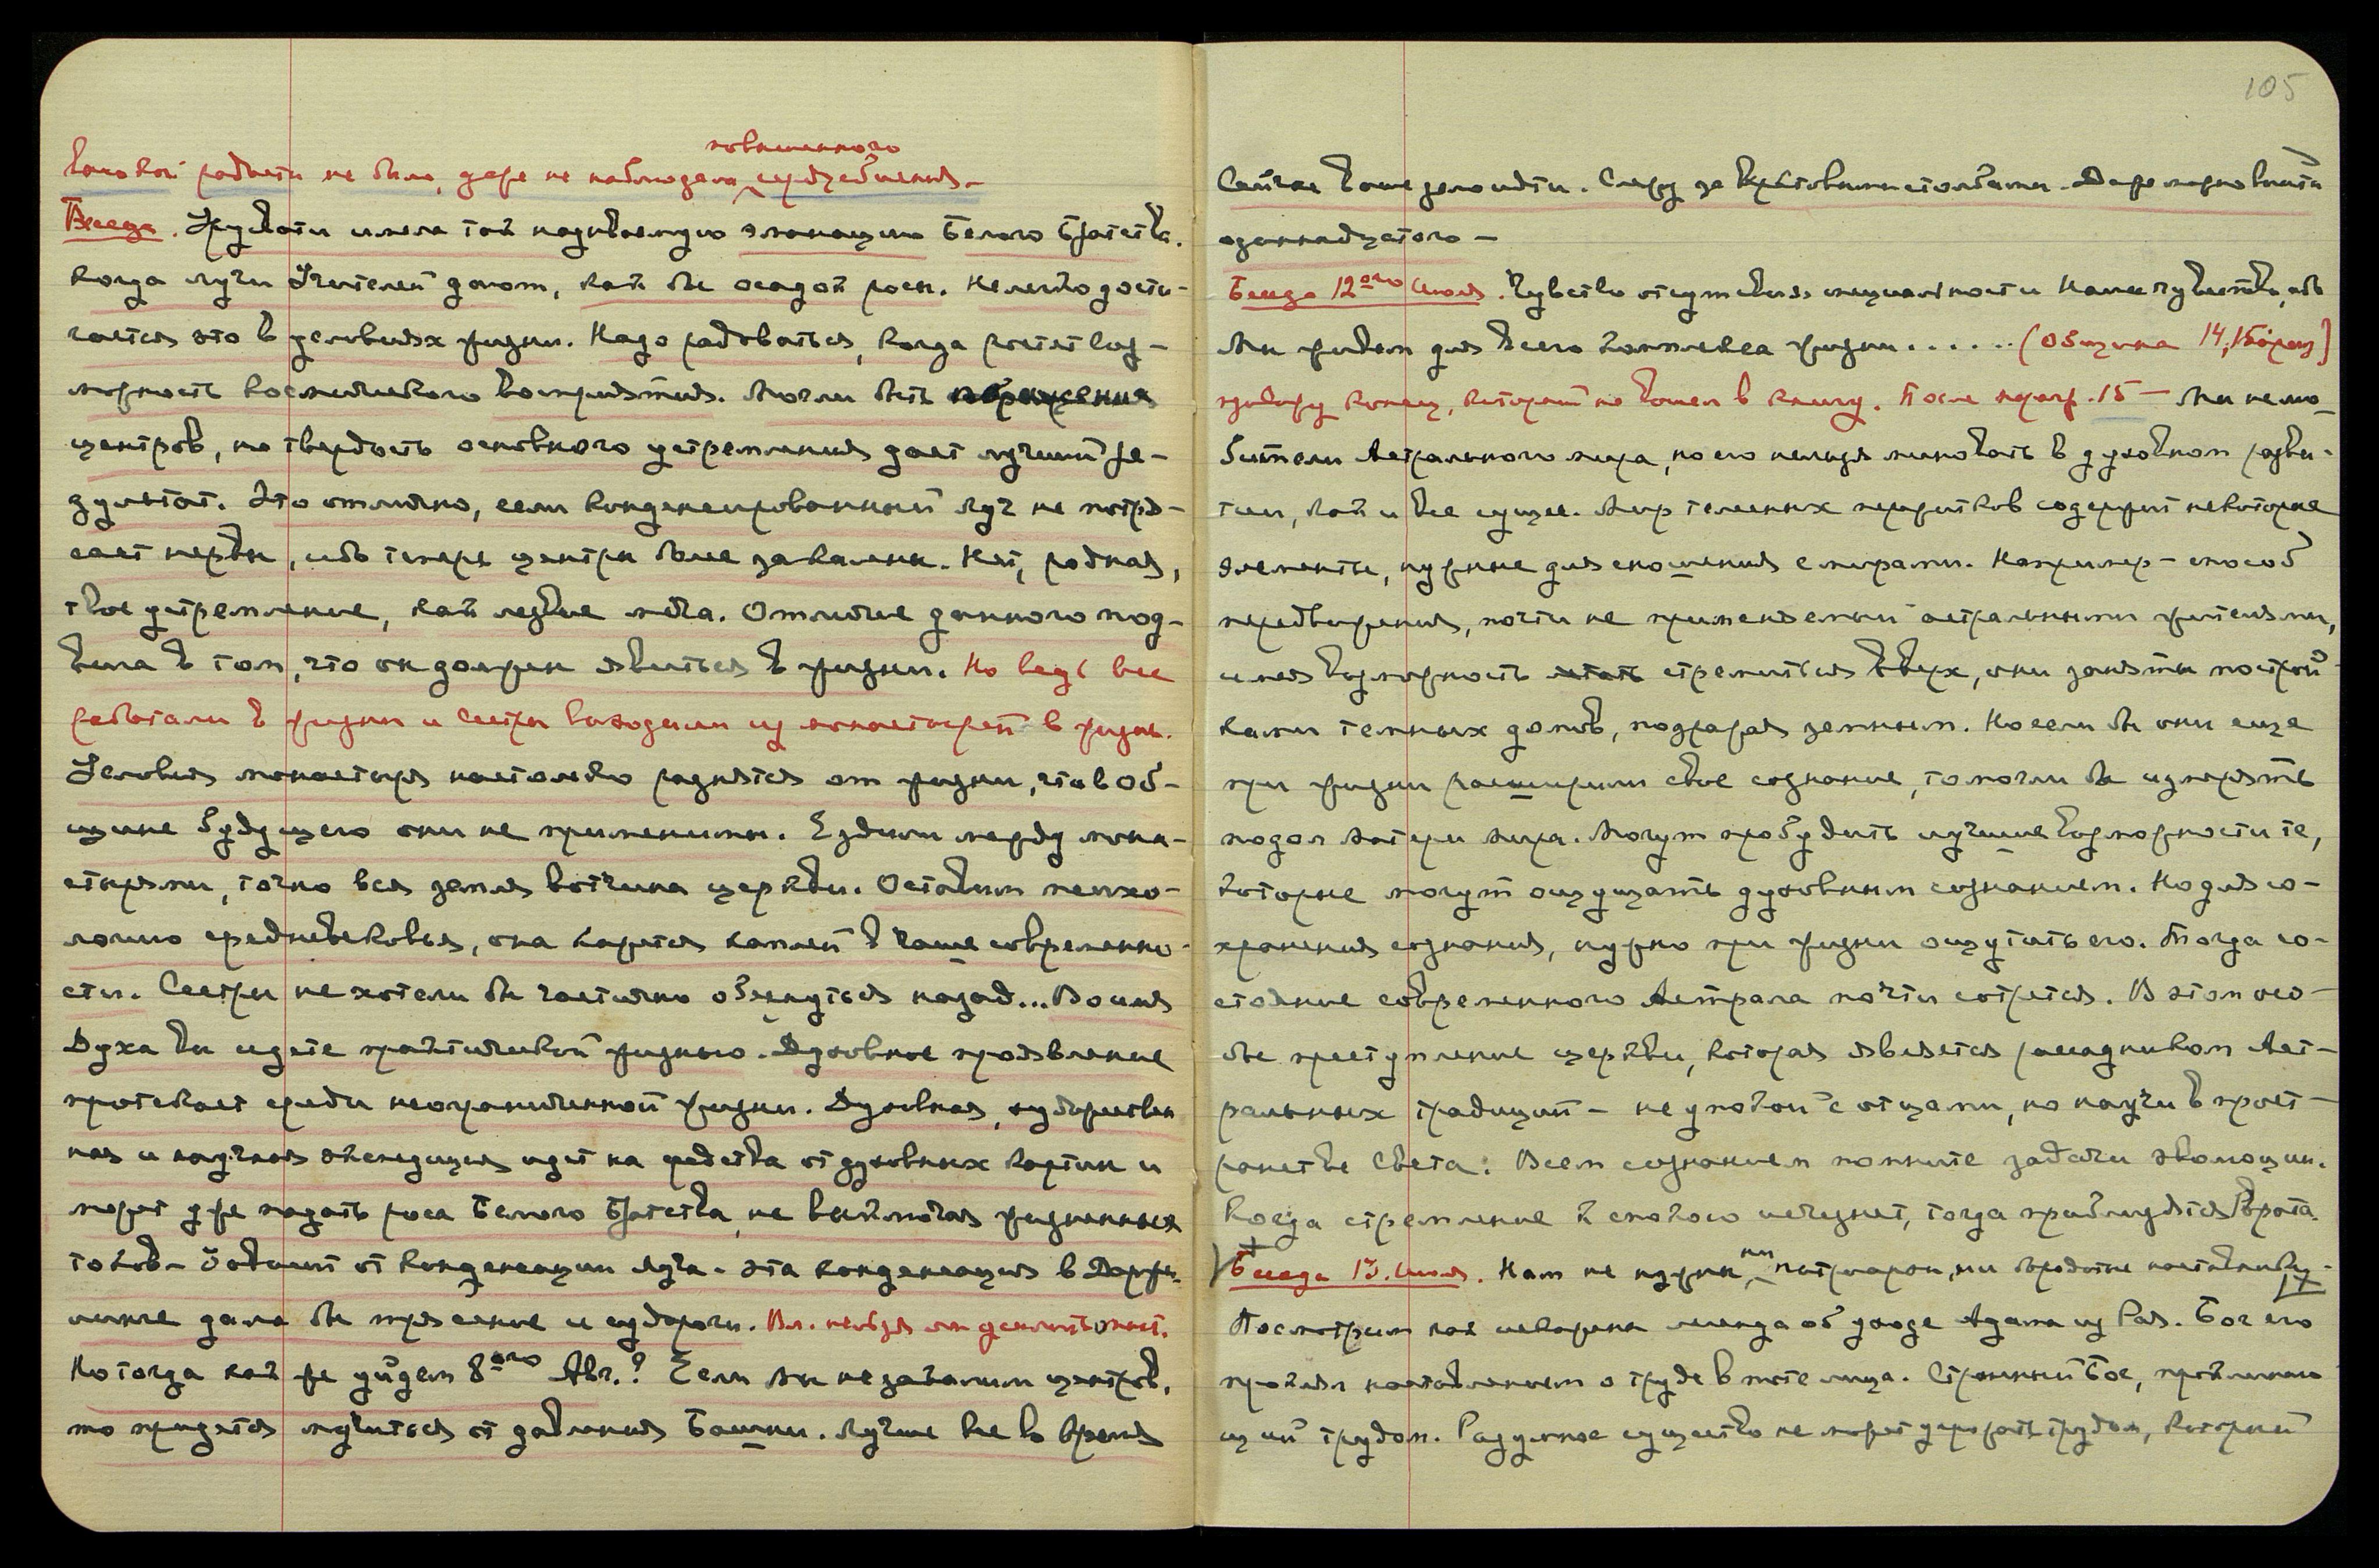 повышенного
такой радости не было, даже не наблюдала сердцебиения.
Беседа. Урувати имела так называемую эманацию Белого Братства.
Когда лучи Учителей дают, как бы осадок росы. Нелегко дости-
гается это в условиях жизни. Надо радоваться, когда растет воз-
можность космического восприятия. Могли быть поражения
центров, но твердость основного устремления дает лучший ре-
зультат. Это отлично, если конденсированный луч не потря-
сает нервы, ибо теперь центры более закалены. Нет, родная,
твое устремление, как лезвие меча. Отличие данного под-
вига в том, что он должен явиться в жизни. Но ведь все
работали в жизни и Сестры выходили из монастырей в жизнь.
Условия монастыря настолько разнятся от жизни, что в об-
щине будущего они не применимы. Ездили между мона-
стырями, точно вся земля вотчина церкви. Оставим психо-
логию средневековья, она кажется каплей в чаше современно-
сти. Сестры не хотели бы частично обернуться назад... Во имя
Духа вы идете практической жизнью. Духовное проявление
протекает среди неограниченной жизни. Духовная, художествен
ная и научная экспедиция идет на средства от духовных картин и
может уже падать роса Белого Братства, не выключая жизненных
токов. Зависит от конденсации луча. Эта конденсация в Дарджи-
линге дала бы трясение и судороги. Вл. нельзя ли
Но тогда как же уйдем 8-ого Авг.? Если мы не закалим центров,
то придется мучиться от давления Башни. Лучше все во время
105
Сейчас ваше дело идти. Слежу за вестовыми столбами. Даже можно выйти
одиннадцатого —
Беседа 12-ого Июля. Чувство отсутствия специальности Нами чувствуемо, ибо
Мы живем для всего комплекса жизни...... (Община 14, 15 параг)
привожу конец, который не вошел в книгу. После параг. 15 — Мы не лю-
бители Астрального мира, но его нельзя миновать в духовном разви-
тии, как и все сущее. Мир телесных пережитков содержит некоторые
элементы, нужные для сношения с мирами. Например — способ
передвижения, почти не применяемый астральными жителями,
имея возможность летать стремиться вверх, они заняты построй-
ками темных домов, подражая земным. Но если бы они еще
при жизни расширили свое сознание, то могли бы измерять
подол Матери мира. Могут пробудить лучшие возможности те,
которые могут ощущать духовным сознанием. Но для со-
хранения сознания, нужно при жизни ощутить его. Тогда со-
стояние современного Астрала почти сотрется. В этом осо-
бое преступление церкви, которая является рассадником Аст-
ральных традиций — не упокой с отцами, но научи в прост-
ранстве Света. Всем сознанием помните задачи эволюции.
Когда стремление к покою исчезнет, тогда приблизятся Врата.
Беседа 13. Июля. Нам не нужны ни патриархи, ни
Посмотрим как искажена легенда об уходе Адама из Рая. Бог его
проклял наставлением о труде в поте лица. Странный Бог, проклинаю
щий трудом. Разумное существо не может угрожать трудом, который